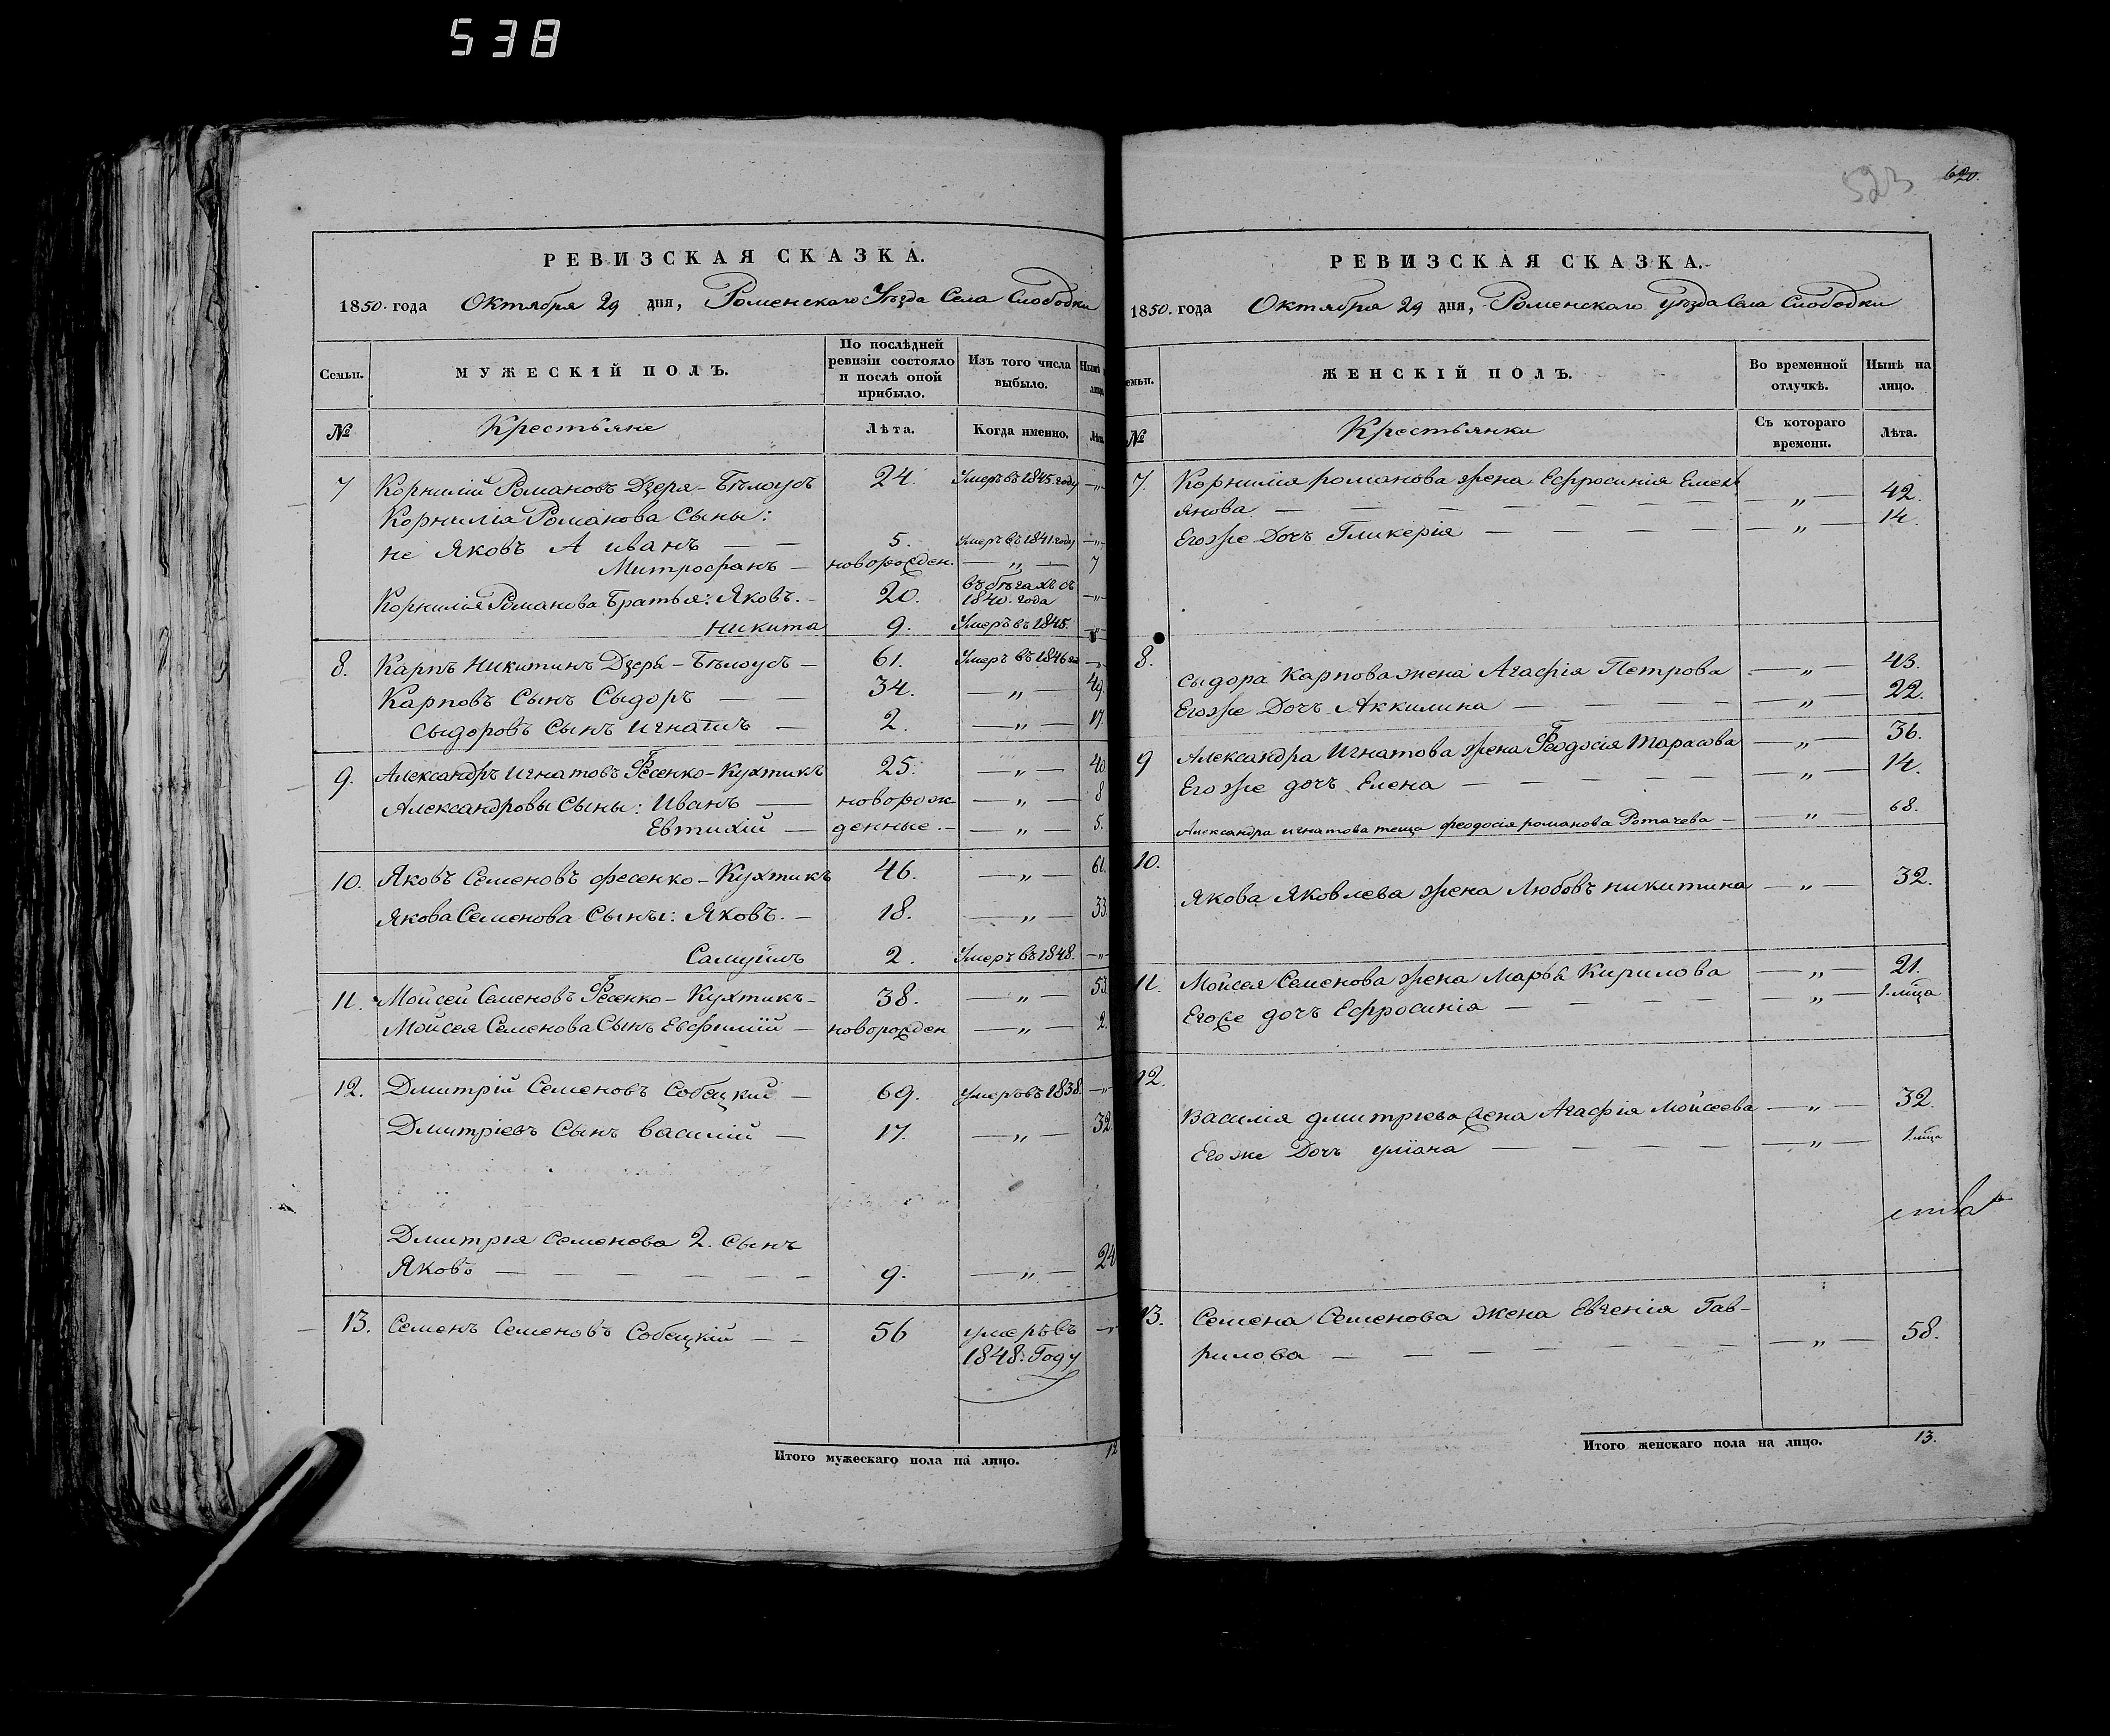 538
РЕВИЗСКАЯ СКАЗКА.
1850. года Октября 29 дня, Роменскаго Уѣзда Села Слободки
Семьи.
МУЖЕСКІЙ ПОЛЪ.
По послѣдней
ревизіи состояло
и послѣ оной
прибыло.
Изъ того числа
выбыло.
Нынѣ
№
Крестьяне
Лѣта.
Когда именно.
7 Корнилій Романовъ Дзера-Бѣлоусъ 24. Умеръ въ 1845. году —„—
Корнилія Романова Сыны:
не Яковъ А иванъ — — 5. Умеръ въ 1841 году —„—
Митрофанъ — новорожден. —„— 7
Корнилія Романова Братья: Яковъ. — 20. въ бѣгахъ съ
1840. года —„—
Никита 9. Умеръ въ 1845. —„—
8. Карпъ Никитинъ Дзера-Бѣлоусъ — 61. Умеръ въ 1846 —„—
Карповъ Сынъ Сыдоръ — — 34. —„— 49
Сыдоровъ Сынъ Игнатъ — 2. —„— 17.
9. Александръ Игнатовъ Фесенко-Кухтикъ 25. —„— 40
Александровы Сыны: Иванъ — новорож- —„— 8
Евтихій — денные. — —„— 5.
10. Яковъ Семеновъ фесенко-Кухтикъ 46. —„— 61.
Якова Семенова Сыны: Яковъ. — 18. —„— 33.
Самуилъ 2. Умеръ въ 1848. —„—
11. Мойсей Семеновъ Фесенко-Кухтикъ- 38. —„— 53
Мойсея Семенова Сынъ Евфимій — новорожден —„— 2.
12. Дмитрій Семеновъ Собецкій — 69. умеръ въ 1838. —„—
Дмитріевъ Сынъ василій — 17. —„— 32.
Дмитрія Семенова 2. Сынъ
Яковъ — — — — — — 9. —„— 24
13. Семенъ Семеновъ Собецкій — — 56 умеръ въ —„—
1848. Году
Итого мужескаго пола на лицо. 12
523 620.
РЕВИЗСКАЯ СКАЗКА.
1850. года Октября 29 дня, Роменскаго уѣзда Села Слободки
ЖЕНСКІЙ ПОЛЪ.
Во временной
отлучкѣ.
Нынѣ на
лицо.
№
Крестьянки
Съ котораго
времени.
Лѣта.
7. Корнилія романова жена Ефросинія Емель
янова — — — — — — —„— 42.
Егоже Дочъ Гликерія — — — — —„— 14.
8.
Сыдора Карпова жена Агафія Петрова —„— 43.
Егоже Дочъ Аккилина — — — — —„— 22.
9 Александра Игнатова жена Феодосія Тарасова —„— 36.
Егоже дочъ Елена — — — — —„— 14.
Александра игнатова теща феодосія романова Ротачева — —„— 68.
10.
Якова Яковлева жена Любовъ никитина —„— 32.
11. Мойсея Семенова жена Марья Кирилова —„— 21.
Егоже дочъ Ефросинія — — — — —„— 1.мца
12.
Василія дмитріева жена Агафія Мойсеева —„— 32.
Егоже Дочъ уліана — — — —„— 1.мца
13. Семена Семенова жена Евгенія Гав-
рилова — — — — — — —„— 58.
Итого женскаго пола на лицо. 13.